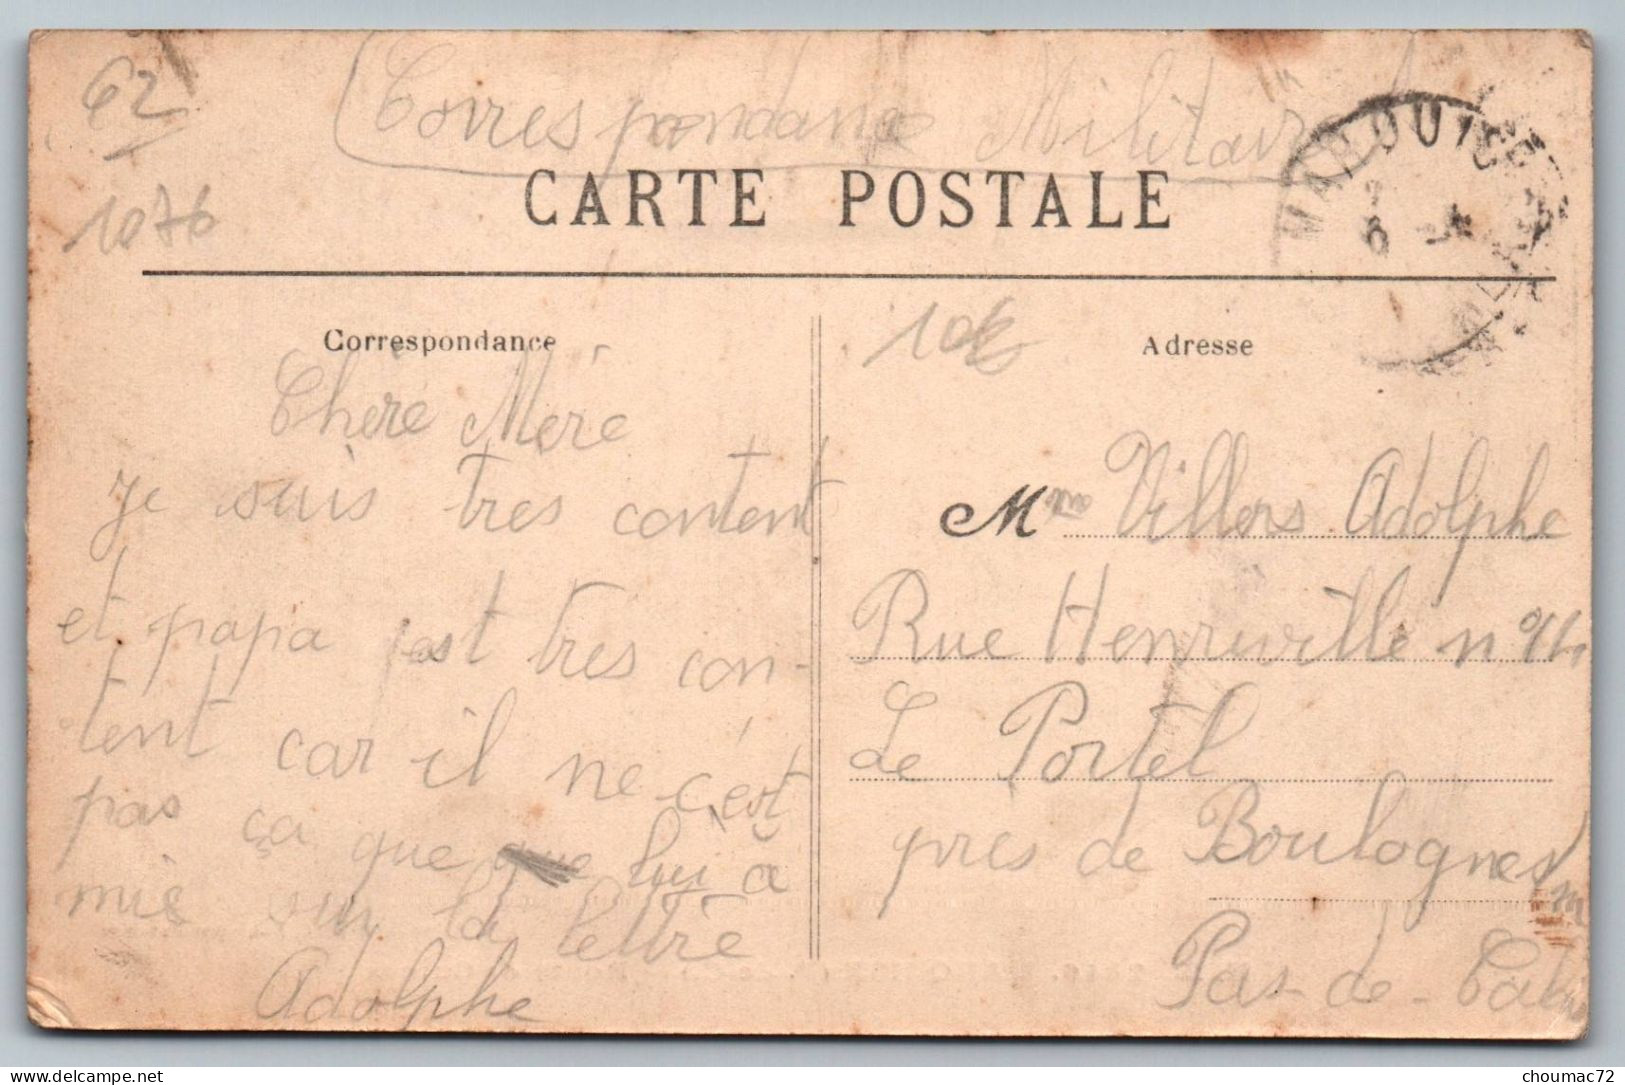 62
1076
Correspondance Militaire
CARTE POSTALE
MARQUISE
Correspondance
Adresse
Chère Mère
je suis tres content
et papa est tres con-
tent car il ne c'est
pas ça que lui à
mie sur la lettre
Adolphe
Mme Villers Adolphe
Rue Henriville n
Le Portel
près de Boulogne
Pas-de-Calais
choumac72